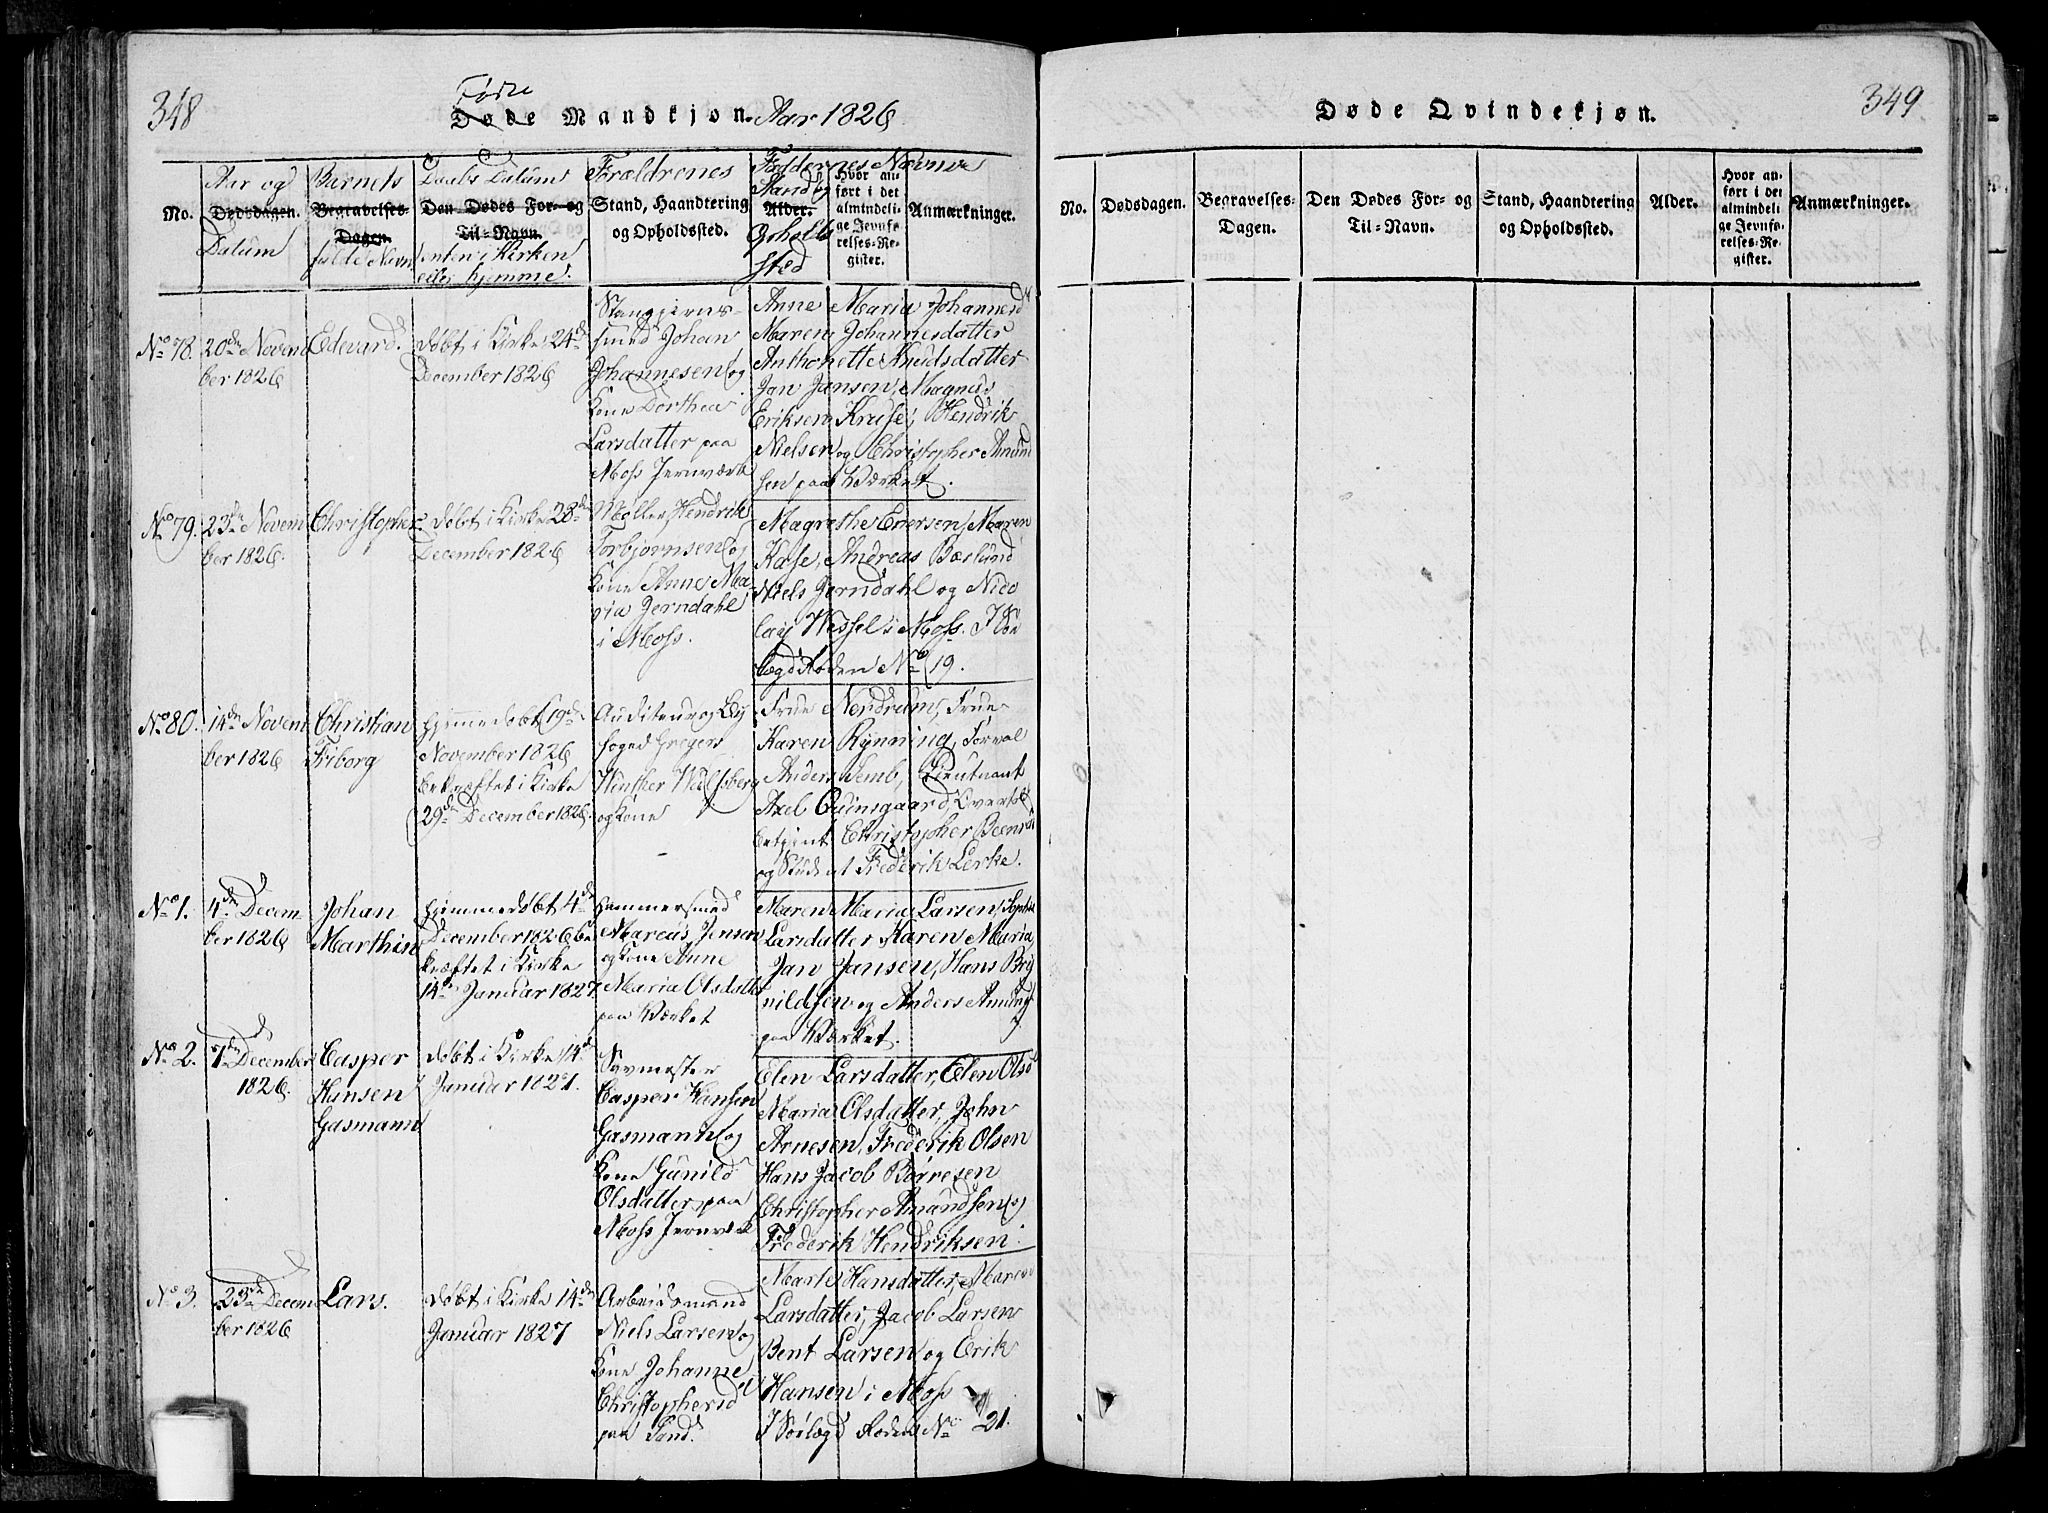 348
Fødte
Døde Mandkjøn. Aar 1826.
No.
Aar og
Dødsdagen.
Datum
Barnets
Begravelses-
Dagen.
fulde Navn
Daabs Datum
Den Dødes For- og
Til-Navn.
enten i Kirken
eller hjemme.
Forældrenes
Stand, Haandtering
og Opholdssted.
Faddernes Navne
Stand og
Alder.
Opholds
sted
Hvor an-
ført i det
almindeli-
ge Jevnfø-
relses-Re-
gister.
Anmærkninger.
No 78.
20de Novem
ber 1826
Edevard.
døbt i Kirke 24de
December 1826
Stangjerns-
smed Johan
Johannesen og
Kone Dorthea
Larsdatter paa
Moss Jernværk
Anne Maria Johannesd
Maren Johannesdatter
Anthonette Knudsdatter
Jan Jansen, Magnus
Eriksen Kruse, Hendrik
Nielsen og Christopher Amund
sen paa Værket.
No 79.
23de Novem
ber 1826.
Christopher
døbt i Kirke 28de
December 1826
Møller Hendrik
Torbjørnsen og
Kone Anne Ma
ria Jerndahl
i Moss.
Magrethe Enersen, Maren
Kase, Andreas Bælund
Niels Jerndahl og Nico
lay Wessel i Moss. I Sø
lægd Roden No 19.
No 80.
14de Novem
ber 1826
Christian
Friborg
hjemmedøbt 19de
November 1826
bekræftet i Kirke
29de December 1826.
Auditeur og By
foged Gregers
Winther Wulfsberg
og Kone
Frue Nordrum, Frue
Karen Rynning, Forval
Anders Semb, Lieutnant
Axel Gudmsgaard, Overtol
betjent Christopher
og Student Frederik Lerke.
No 1.
4de Decem-
ber 1826
Johan
Marthin
hjemmedøbt 4de
December 1826 be
kræftet i Kirke
14de Januar 1827
Hammersmed
Marcus Jensen
og Kone Anne
Maria Olsdatter
paa Værket
Maren Maria Larsen, Sophie
Larsdatter, Karen Maria
Jan Jansen, Hans Bry
nildsen og Anders Amunds
paa Værket.
No 2.
7de December
1826.
Casper
Hansen
Gasmann
døbt i Kirke 14de
Januar 1827.
Savmester
Casper Hansen
Gasmann og
Kone Gunild
Olsdatter paa
Moss Jernværk
Elen Larsdatter, Elen Olsd
Maria Olsdatter, John
Arnesen, Frederik Olsen
Hans Jacob Børresen
Christopher Amundsen og
Frederik Hendriksen.
No 3.
23de Decem
ber 1826
Lars.
døbt i Kirke 14de
Januar 1827
Arbeidsmand
Niels Larsen og
Kone Johanne
Christophersd
paa Sand.
Marte Hansdatter, Maren
Larsdatter, Jacob Larsen
Bent Larsen og Erik
Hansen i Moss
I Sølægd Roden No 21.
349
Døde Qvindekjøn.
No.
Dødsdagen.
Begravelses-
Dagen.
Den Dødes For- og
Til-Navn.
Stand, Haandtering
og Opholdssted.
Alder.
Hvor an-
ført i det
almindeli-
ge Jevnfø-
relses-Re-
gister.
Anmærkninger.